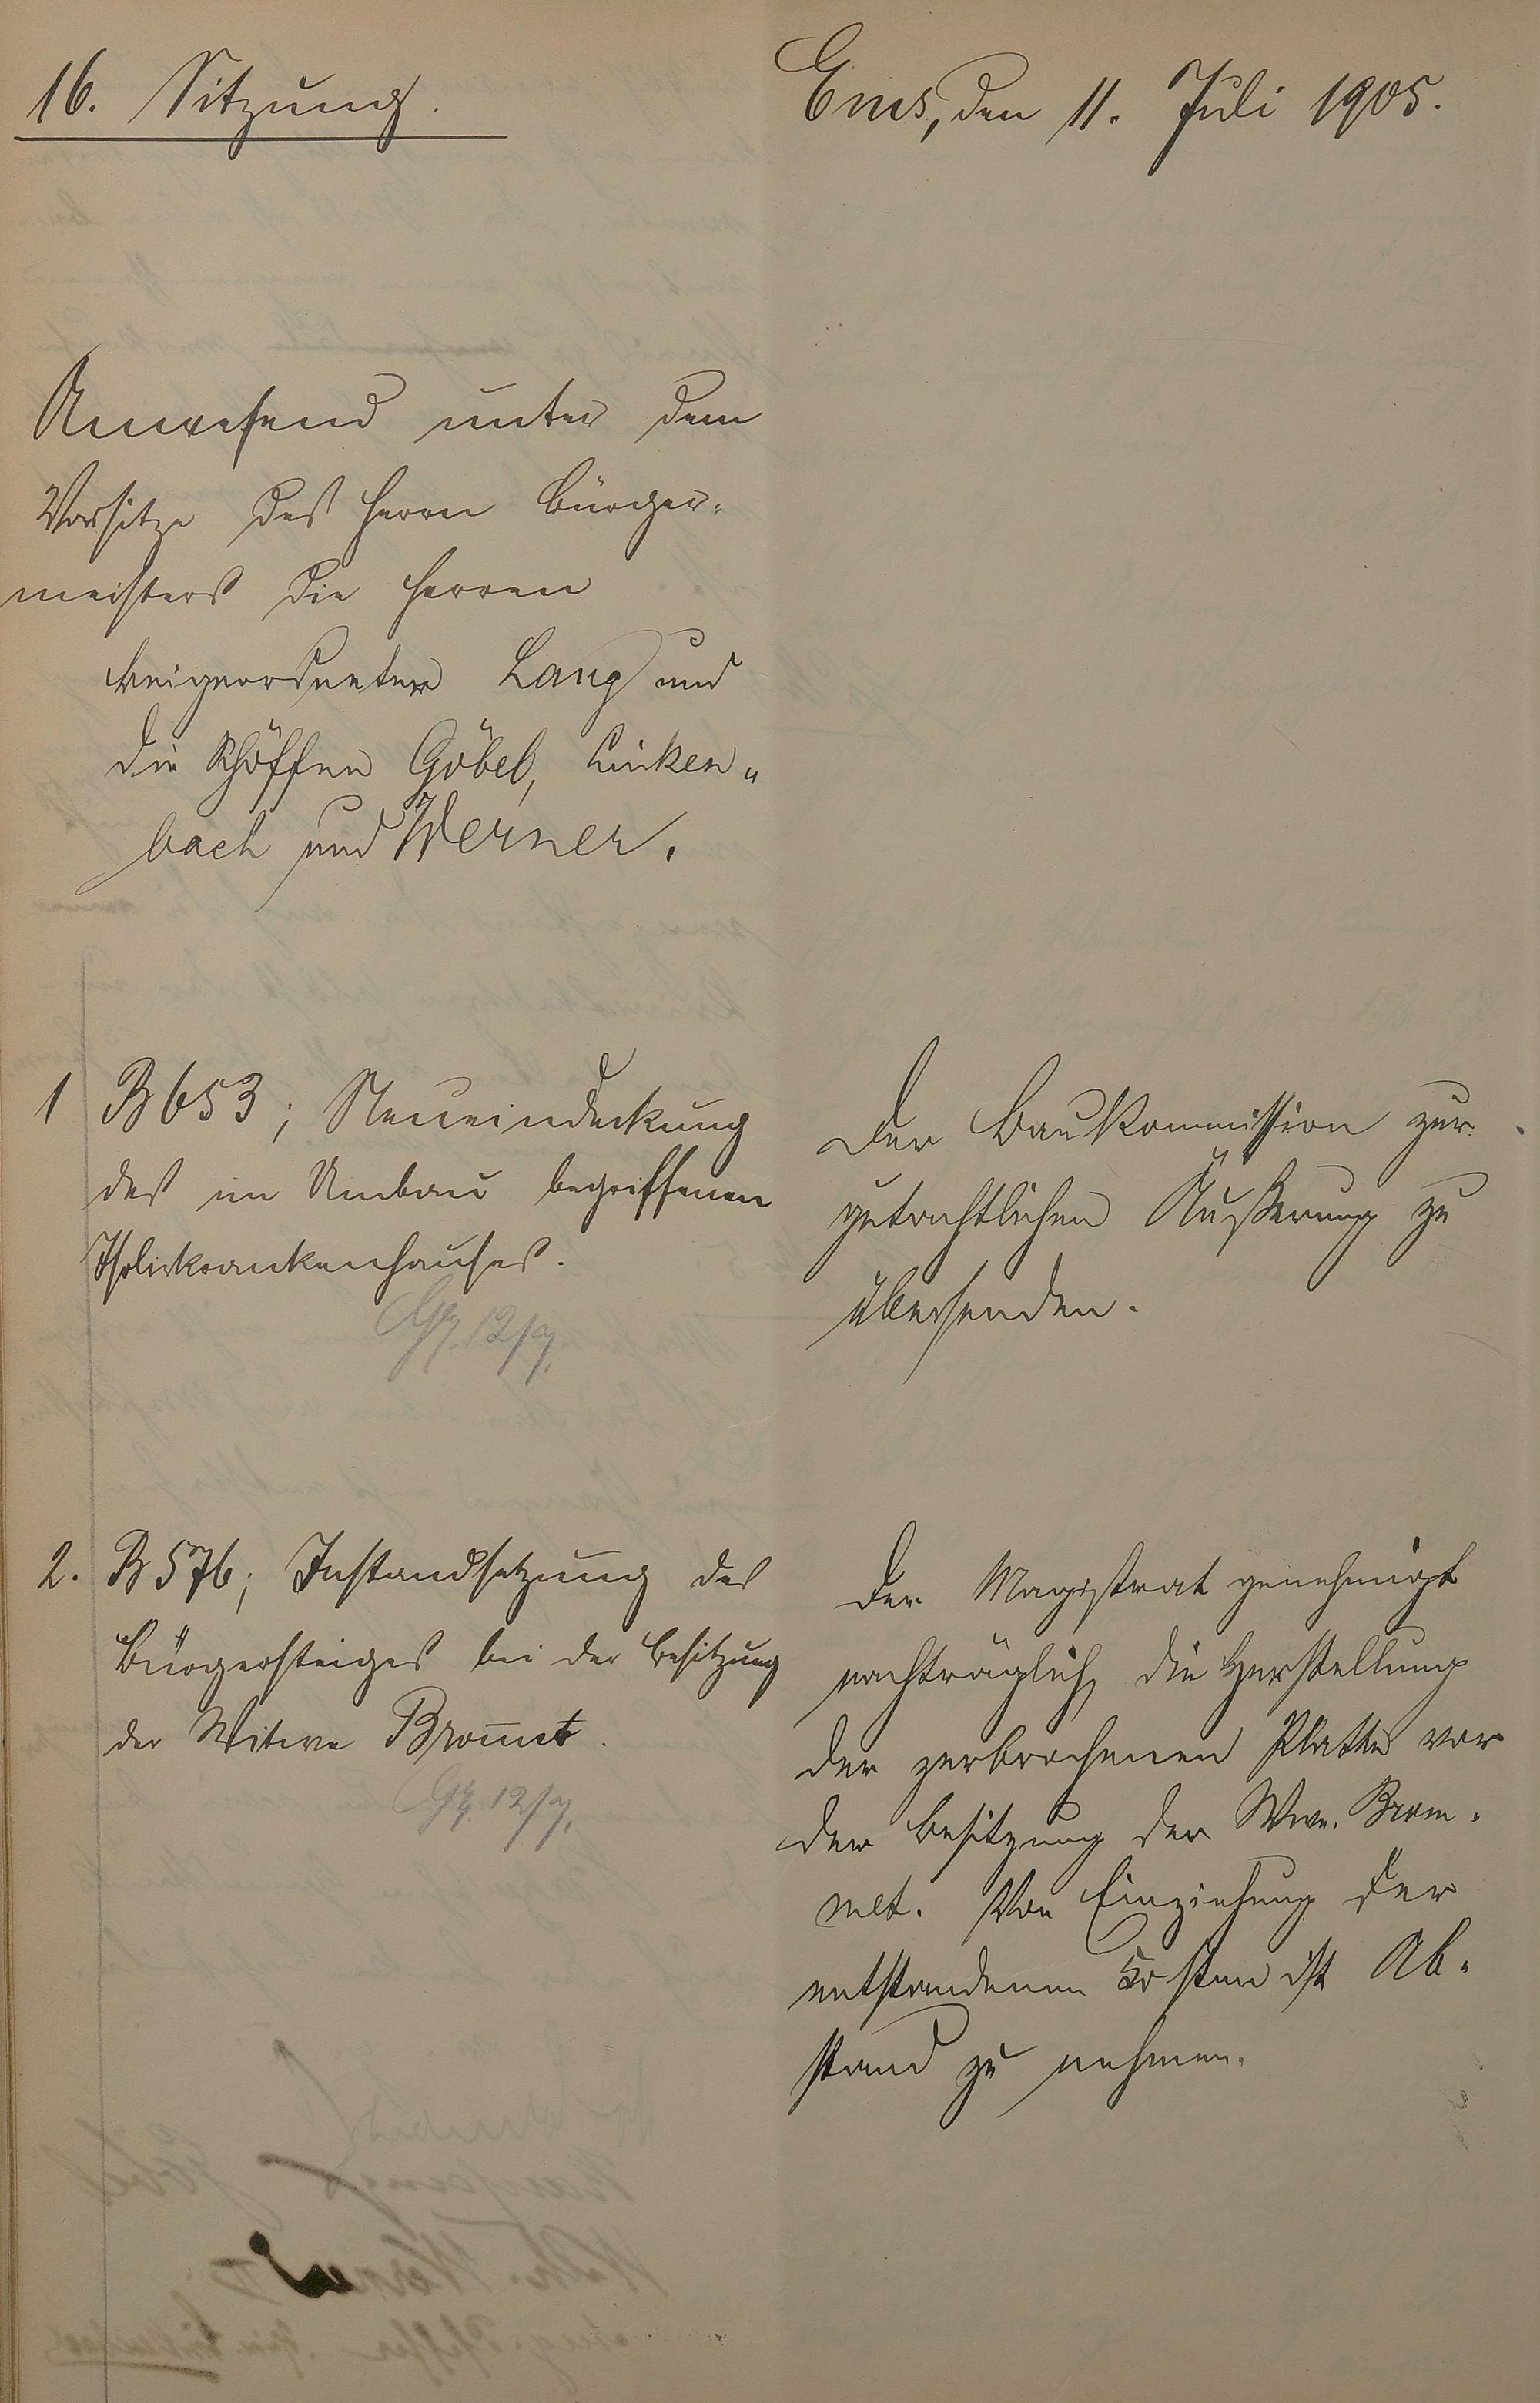 16. Sitzung.
Ems, den 11. Juli 1905.
Anwesend unter dem
Vorsitze des Herrn Bürger-
meisters die Herren
Beigeordneter Lang und
die Schöffen Göbel, Linken-
bach und Werner.
1 B 653; Neueindeckung
des im Umbau begriffenen
Isolirkrankenhauses.
12/7.
Der Baukommission zur
gutachtlichen Äußerung zu
übersenden.
2. B 576; Instandsetzung des
Bürgersteiges bei der Besitzung
der Witwe Brom̄et.
12/7.
Der Magistrat genehmigt
nachträglich die Herstellung
der zerbrochenen Platte vor
der Besitzung der Wwe. Brom-
met. Von Einziehung der
entstandenen Kosten ist Ab-
stand zu nehmen.